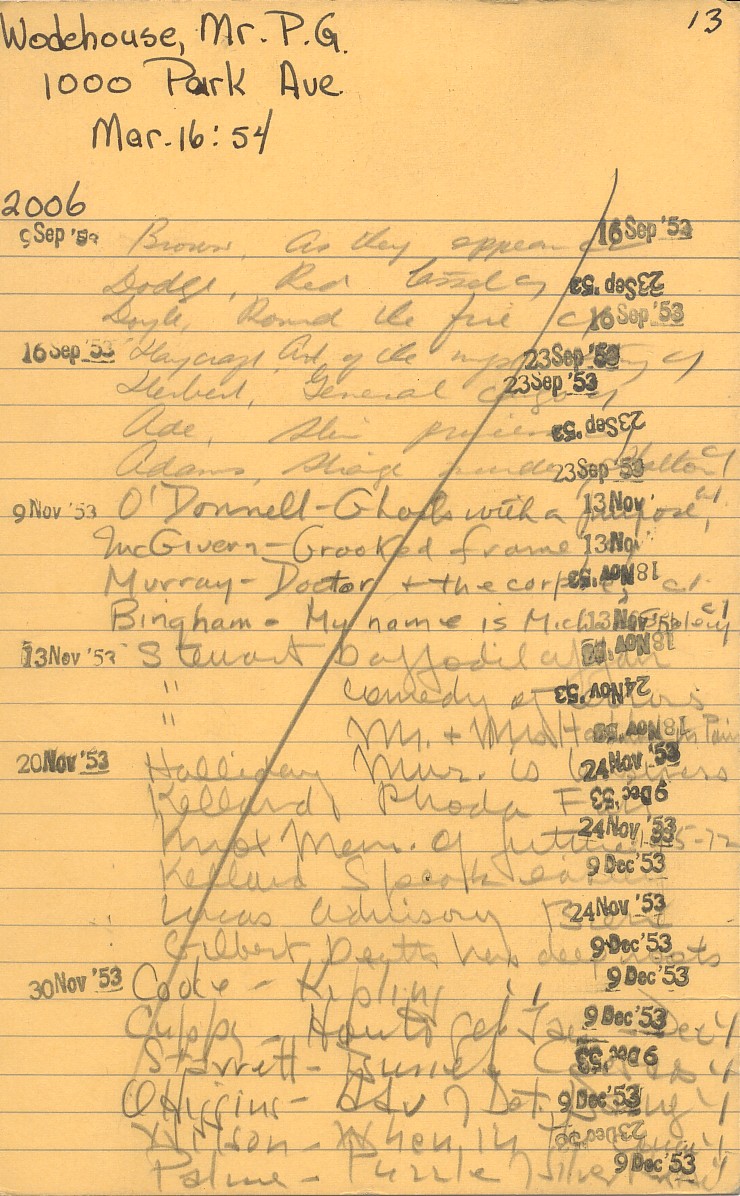 13
Wodehouse, Mr. P.G.
1000 Park Ave.
Mar. 16:54
2006
9 Sep '53 Brown, As they appear 16 Sep '53
Dodge, Red tassel 23 Sep '53
Doyle, Round the fire 16 Sep '53
16 Sep '53 Haycraft, Art of the mystery 23 Sep '53
Herbert, General cargo 23 Sep '53
Ade, 23 Sep '53
Adams, 23 Sep '53
9 Nov '53 O'Donnell - Ghosts with a purpose, c1 13 Nov '
McGivern - Crooked frame 13 Nov
Murray - Doctor + the corpse, c1 18 Nov '53
Bingham - My name is Michael Sibley c1 13 Nov '53
13 Nov '53 Stewart Daffodil affair 18 Nov '53
" Comedy of terrors 24 Nov '53
" Mr. + Mrs 18 Nov '53
20 Nov '53 Halliday Mur. is 24 Nov '53
Kelland Rhoda 9 Dec '53
Knox Mem. of future 5-72 24 Nov '53
Kelland Speak easily 9 Dec '53
Lucas Advisory Ben 24 Nov '53
Gilbert Death has deep roots 9 Dec '53
30 Nov '53 Code - Kipling 9 Dec '53
Cuppy - How to get 9 Dec '53
Starrett - 9 Dec '53
O'Higgins - Adv of Det. Barney 9 Dec '53
Wilson - When in 23 Dec '53
Palmer - Puzzle of silver 9 Dec '53